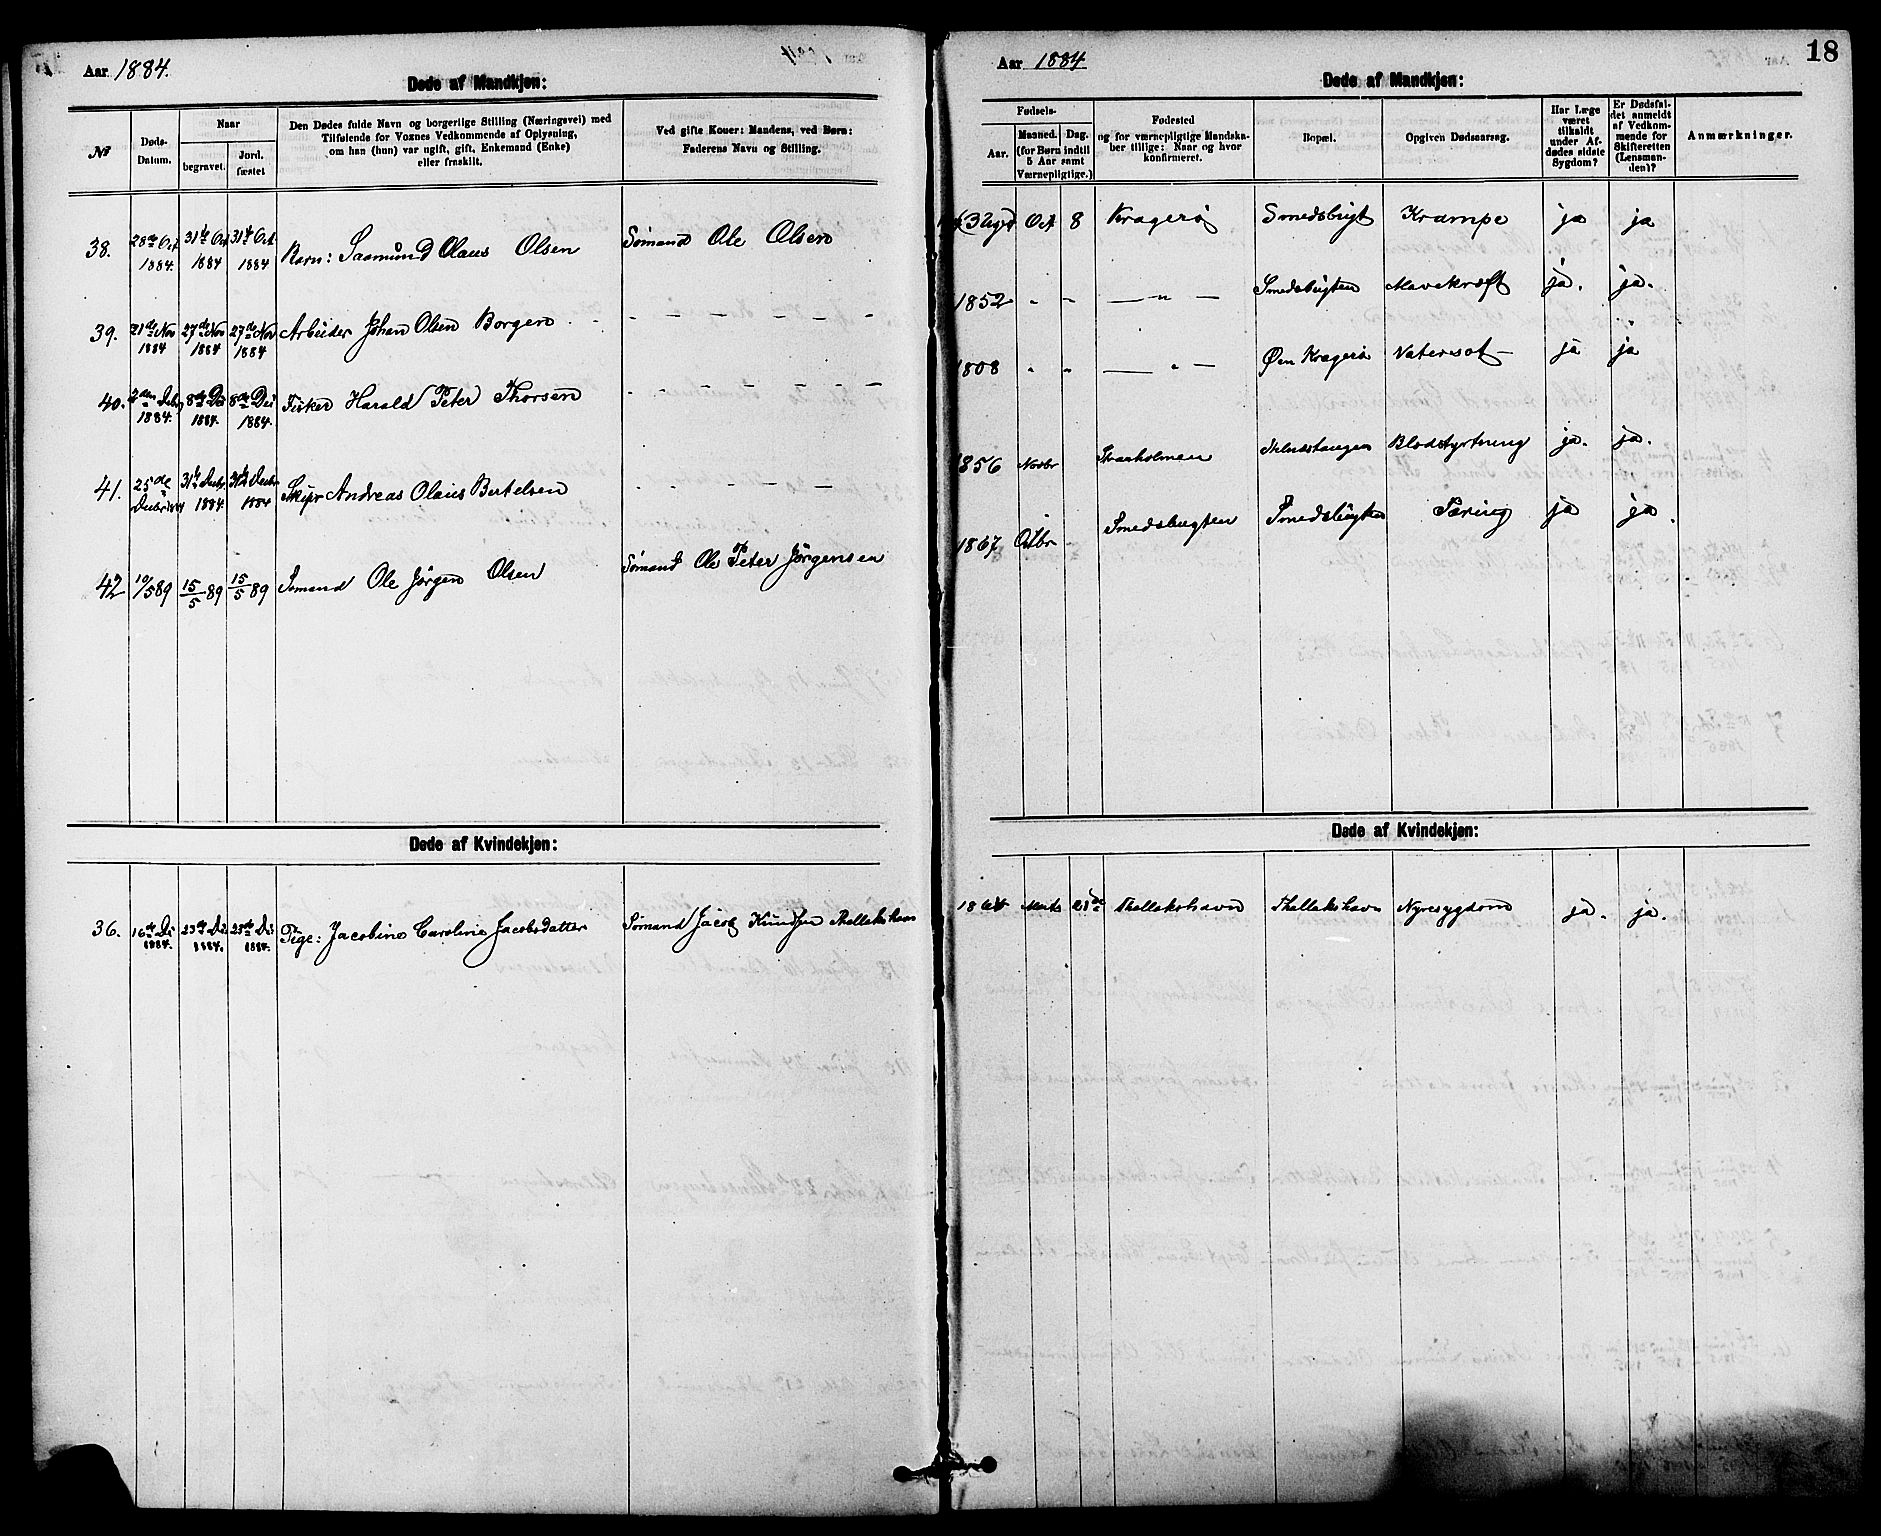 Aar 1884.
Døde af Mandkjøn:
№
Døds-
Datum.
Naar
begravet.
Jord-
fæstet
Den Dødes fulde Navn og borgerlige Stilling (Næringsvei) med
Tilføiende for Voxnes Vedkommende af Oplysning,
om han (hun) var ugift, gift, Enkemand (Enke)
eller fraskilt.
Ved gifte Koner: Mandens, ved Børn:
Faderens Navn og Stilling.
38. 28de Oct 1884. 31te Oct 1884 31te Oct 1884 Barn: Saamund Olaus Olsen Sømand Ole Olsen
39. 21de Nov 1884 27de Nov 1884 27de Nov 1884 Arbeider Johan Olsen Borgen
40. 2den Decbr 1884. 8de De 1884. 8de De 1884. Fisker Harald Peter Thorsen
41. 25de Decbr 1884 31te Decbr 1884. 31te Decbr 1884 Skipr Andreas Olaus Bertelsen
42 10/5 89 15/5 89 15/5 89 Sømand Ole Jørgen Olsen Sømand Ole Peter Jörgensen
Døde af Kvindekjøn:
36. 16de De 1884. 23de De 1884. 23de De 1884. Pige: Jacobine Caroline Jacobsdatter Sømand Jacob Knudsen Thallakshavn
18
Aar 1884
Døde af Mandkjøn:
Fødsels-
Aar.
Maaned. Dag.
(for Børn indtil
5 Aar samt
Værnepligtige.)
Fødested
og for værnepligtige Mandska-
ber tillige: Naar og hvor
konfirmeret.
Bopæl.
Opgiven Dødsaarsag.
Har Læge
været
tilkaldt
under Af-
dødes sidste
Sygdom?
Er Dødsfal-
det anmeldt
af Vedkom-
mende for
Skifteretten
(Lensman-
den)?
Anmærkninger.
(3 Uger) Oct 8 Kragerø Smedsbugt Krampe ja ja
1852 - - — " — Smedsbugten Mavekræft ja. ja.
1808 - " — " — Øen Kragerø Vatersot ja ja
1856 Novbr Straaholmen Blodstyrtning ja. ja.
1867 Octbr - Smedsbugten Smedsbugten Tæring ja ja.
Døde af Kvindekjøn:
1864 Marts 28de Thallakshavn Thallakshavn Nyresygdom ja. ja.